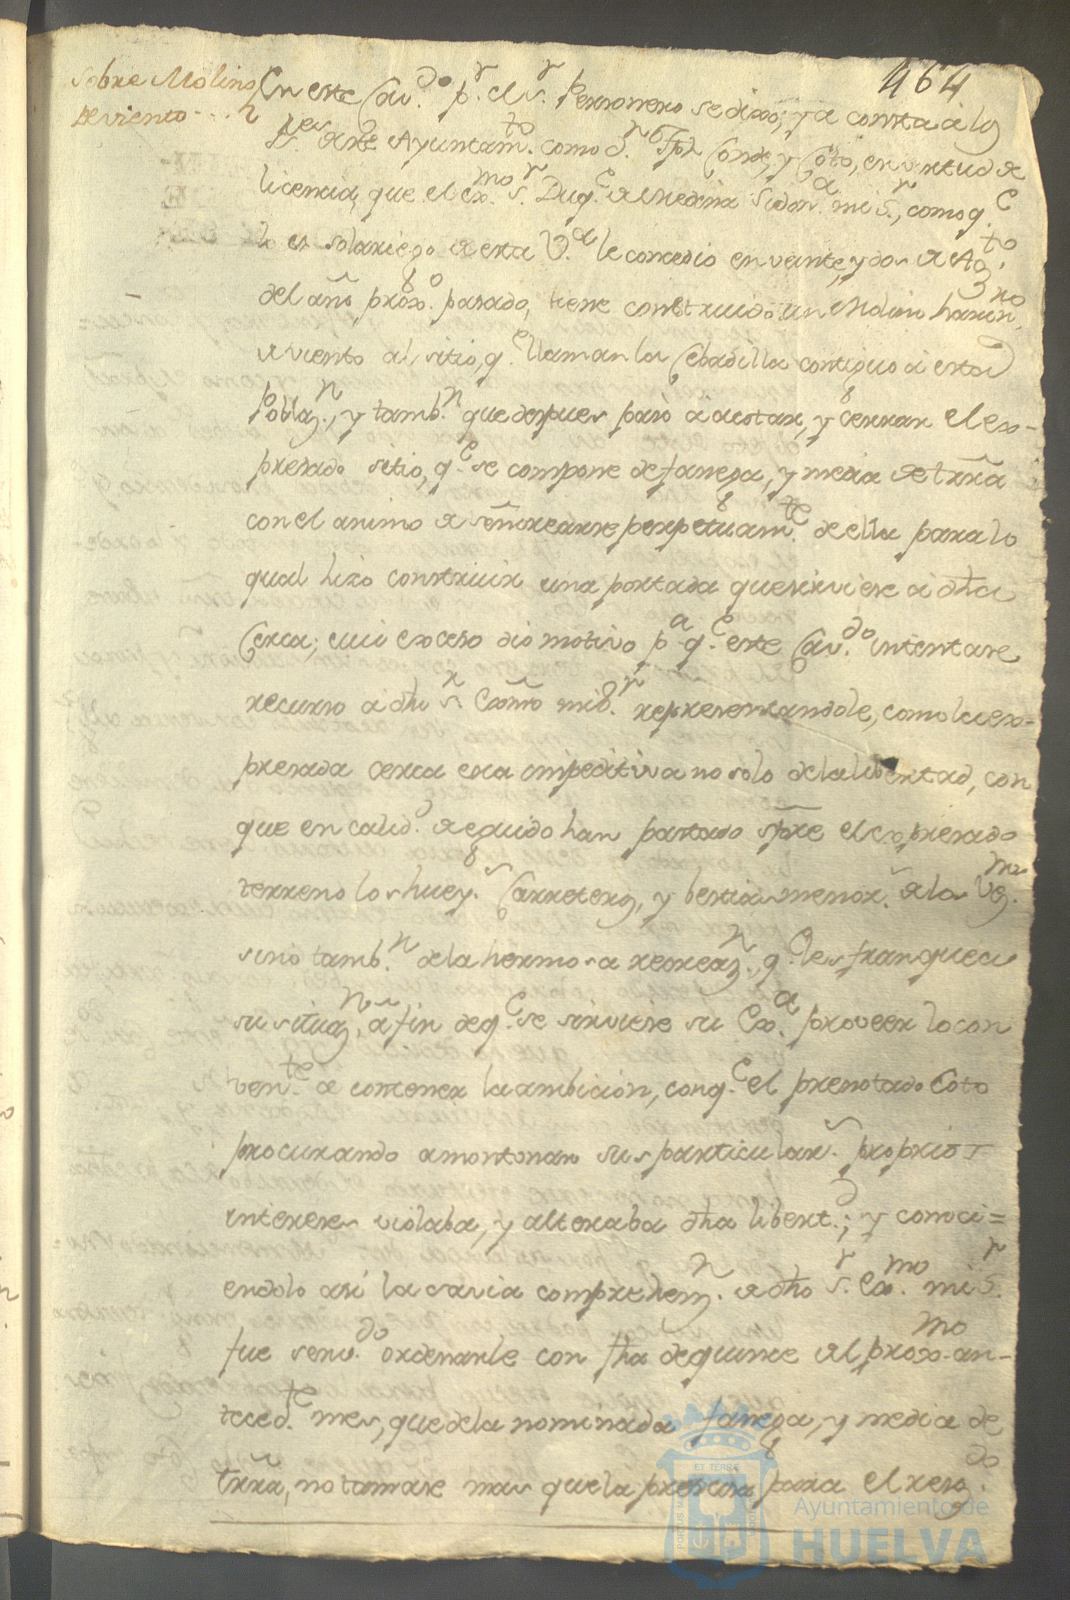 464
Sobre Molino
de viento
En este Cav.do p.r el s.r Personero se dixo; ya consta a los
S.res de este Ayuntam.to como D.n Jph Conde, y Coto, en virtud de
licencia, que el ex.mo s.r Duq.e de Medina Sidon.a mi S.r, como q.e
lo es solariego de esta V.a le concedio en veinte, y dos de Ag.to
del año prox.o pasado, tiene construido un Molino harin.ro
de viento al sitio, q.e llaman la Cebadilla contiguo a esta
Poblaz.n, y tamb.n que despues paso a acotar, y cerrar el ex-
presado sitio, q.e se compone de fanega, y media de trrã
con el animo de señorearse perpetuam.te de ella para lo
qual hizo construir una portada que sirviese a dha
Cerca; cuio exceso dio motivo p.a q.e este Cav.do intentase
recurso a dho s.r Exmo mi S.r representandole, como la ex-
presada cerca era impeditiva no solo de la libertad, con
que en calid.d de exido han pastado sobre el expresado
terreno los huey.s Carreteros, y bestias menor.s de los Vez.nos
sino tamb.n de la hermosa recreaz.n, q.e les franquea
su situaz.n, a fin de q.e se sirviese su Ex.a proveer lo con
ven.te a contener la ambicion, con q.e el prenotado Coto
procurando amontonar sus particular.s proprios
intereses violaba, y alteraba dha libert.d; y conoci=
endolo asi la savia comprehens.n de dho S.r Ex.mo mi S.r
fue serv.do ordenarle con fha de quince del prox.mo an-
teced.te mes, que de la nominada fanega, y media de
trrã, no tomase mas que la precisa para el resg.do
ET TERRÆ
Ayuntamiento de
HUELVA